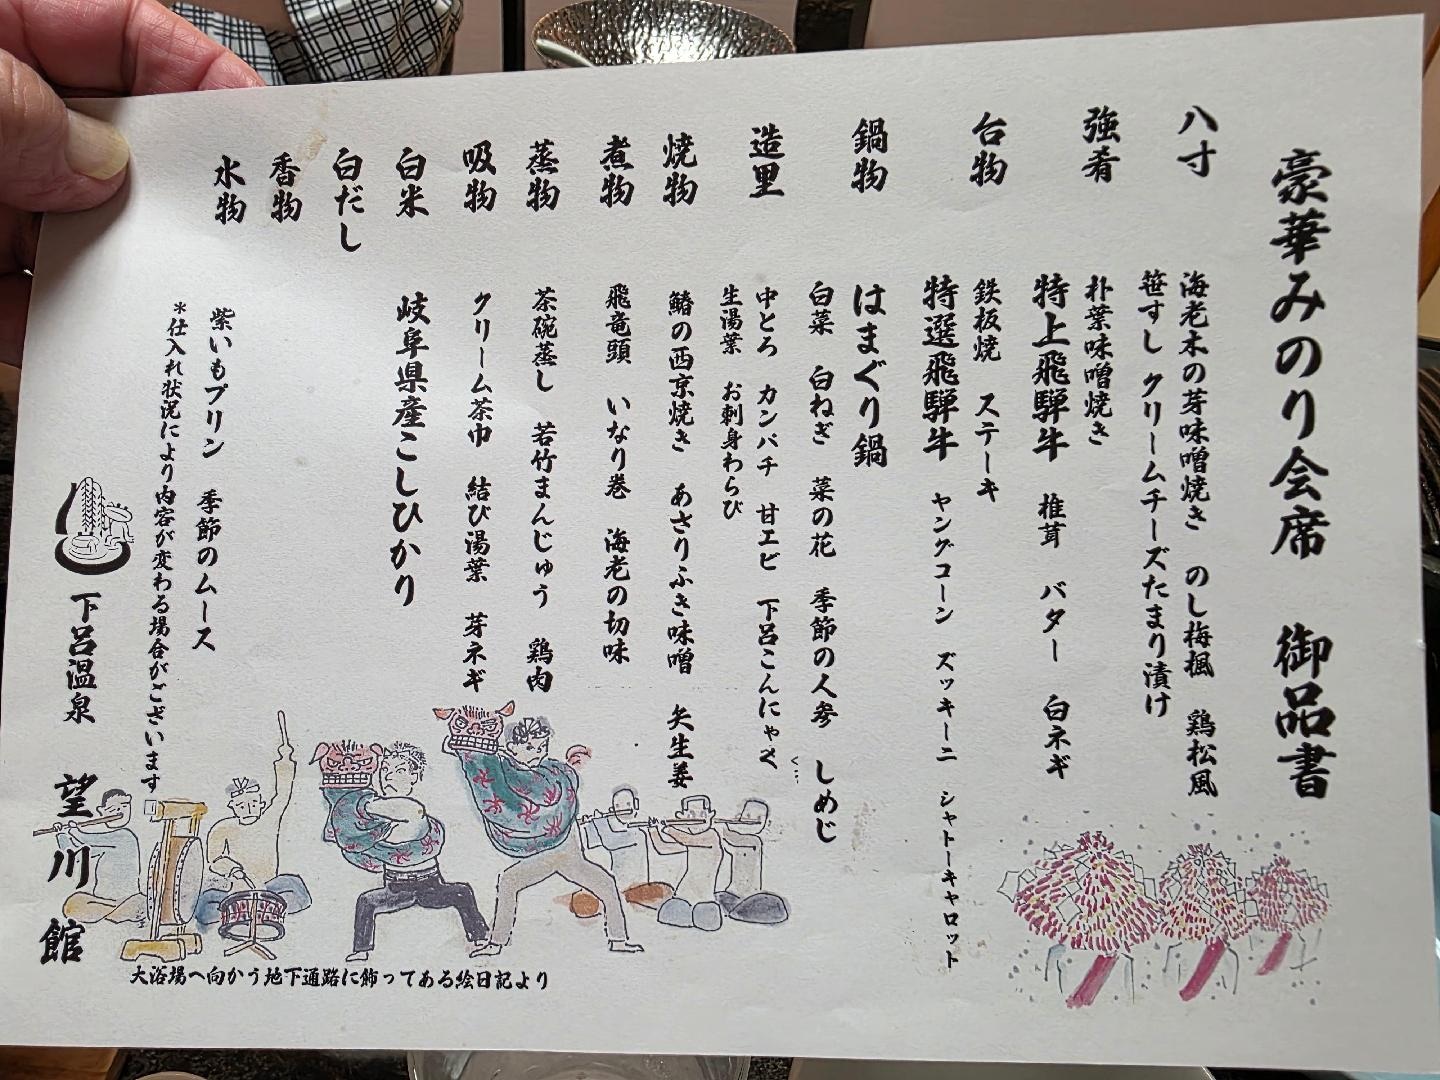 豪華みのり会席 御品書
八寸
海老木の芽味噌焼き のし梅楓 鶏松風
笹すし クリームチーズたまり漬け
強肴
朴葉味噌焼き
特上飛騨牛 椎茸 バター 白ネギ
台物
鉄板焼 ステーキ
特選飛騨牛 ヤングコーン ズッキーニ シャトーキャロット
鍋物
はまぐり鍋
白菜 白ねぎ 菜の花 季節の人参 しめじ
造里
中とろ カンパチ 甘エビ 下呂こんにゃく
生湯葉 お刺身わらび
焼物
鰆の西京焼き あさりふき味噌 矢生姜
煮物
飛竜頭 いなり巻 海老の切味
蒸物
茶碗蒸し 若竹まんじゅう 鶏肉
吸物
クリーム茶巾 結び湯葉 芽ネギ
白米
岐阜県産こしひかり
白だし
香物
水物
紫いもプリン 季節のムース
*仕入れ状況により内容が変わる場合がございます
下呂温泉 望川館
大浴場へ向かう地下通路に飾ってある絵日記より